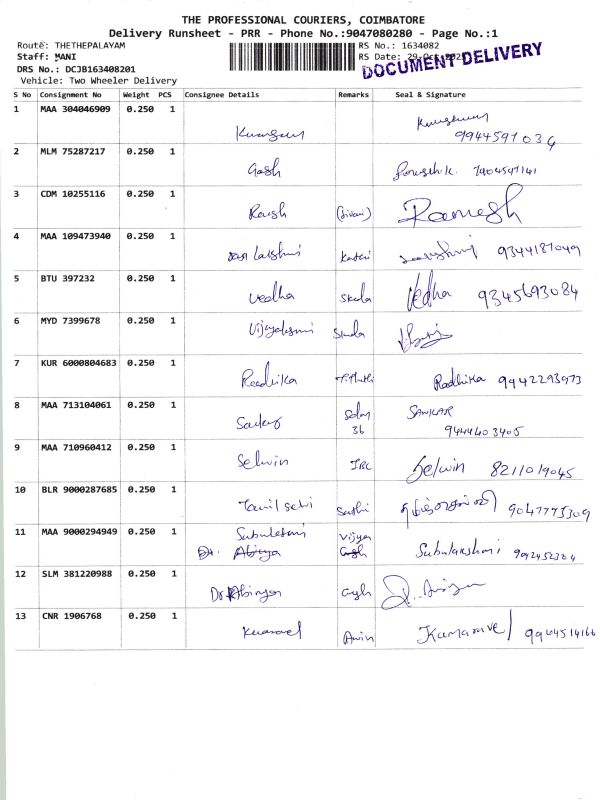 THE PROFESSIONAL COURIERS, COIMBATORE
Delivery Runsheet - PRR - Phone No.:9047080280 - Page No.:1
Route: THETHEPALAYAM
RS No.: 1634082
Staff: MANI
RS Date: 29-Oct-202
DOCUMENT DELIVERY
DRS No.: DCJB163408201
Vehicle: Two Wheeler Delivery
S No Consignment No Weight PCS Consignee Details Remarks Seal & Signature
1 MAA 304046909 0.250 1 9944591034
2 MLM 75287217 0.250 1 Gash 7904597141
3 CDM 10255116 0.250 1 Ramesh
4 MAA 109473940 0.250 1 Lakshmi 9344187049
5 BTU 397232 0.250 1 Vedha Vedha 9345693084
6 MYD 7399678 0.250 1
7 KUR 6000804683 0.250 1 Radhika 9942293973
8 MAA 713104061 0.250 1 36 SANKAR
9444403405
9 MAA 710960412 0.250 1 Selwin Selwin 8211019045
10 BLR 9000287685 0.250 1 Tamil selvi Sathi தமிழ்செல்வி 9047773309
11 MAA 9000294949 0.250 1 Vijya
Subulakshmi
12 SLM 381220988 0.250 1
13 CNR 1906768 0.250 1 Kumaravel 9904514166